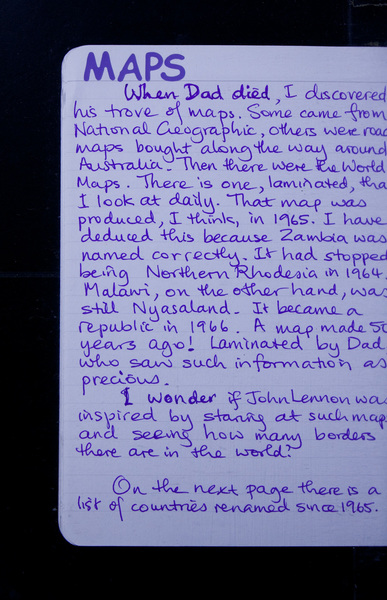 MAPS
When Dad died, I discovered
his trove of maps. Some came from
National Geographic, others were road
maps bought along the way around
Australia. Then there were the World
Maps. There is one, laminated, tha
I look at daily. That map was
produced, I think, in 1965. I have
deduced this because Zambia was
named correctly. It had stopped
being Northern Rhodesia in 1964.
Malawi, on the other hand, was
still Nyasaland. It became a
republic in 1966. A map made 50
years ago! Laminated by Dad
who saw such information as
precious.
I wonder if John Lennon was
inspired by staring at such map
and seeing how many borders
there are in the world?
On the next page there is a
list of countries renamed since 1965.